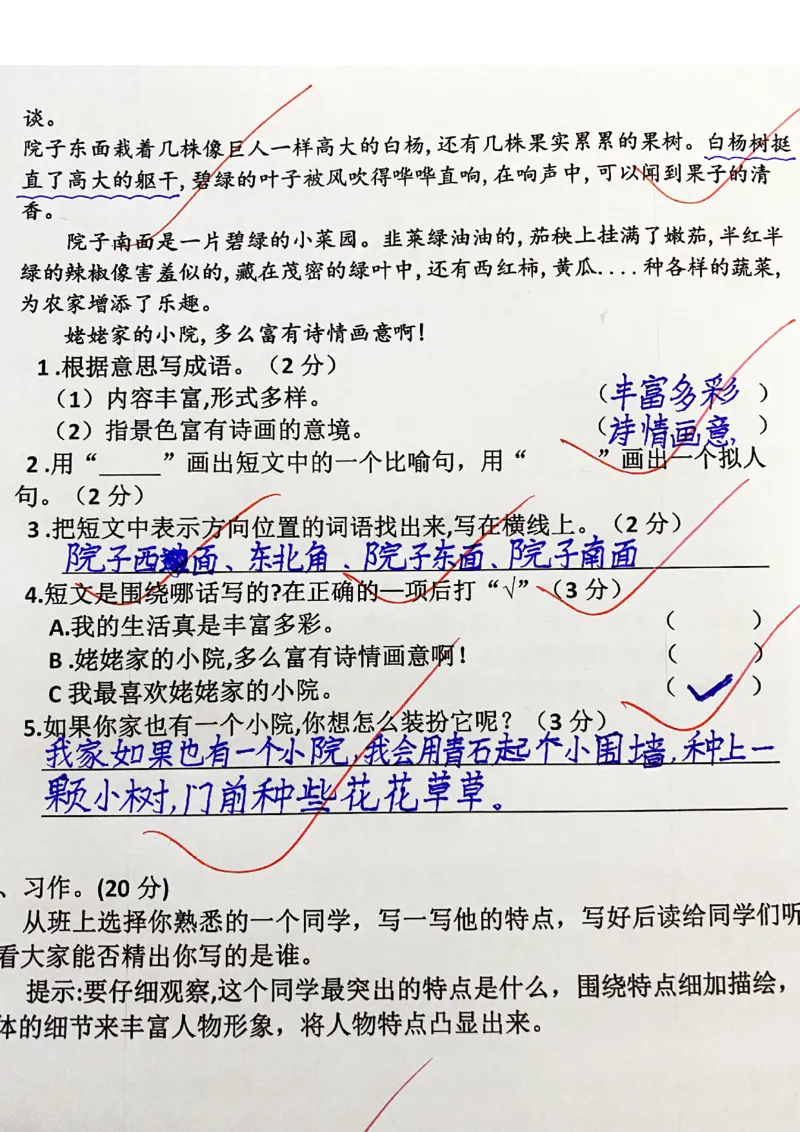 谈。
院子东面栽着几株像巨人一样高大的白杨,还有几株果实累累的果树。白杨树挺
直了高大的躯干,碧绿的叶子被风吹得哗哗直响,在响声中,可以闻到果子的清
香。
院子南面是一片碧绿的小菜园。韭菜绿油油的,茄秧上挂满了嫩茄,半红半
绿的辣椒像害羞似的,藏在茂密的绿叶中,还有西红柿,黄瓜....种各样的蔬菜,
为农家增添了乐趣。
姥姥家的小院,多么富有诗情画意啊!
1.根据意思写成语。(2分)
(1)内容丰富,形式多样。 (丰富多彩)
(2)指景色富有诗画的意境。 (诗情画意)
2.用“_____”画出短文中的一个比喻句,用“ ”画出一个拟人
句。(2分)
3.把短文中表示方向位置的词语找出来,写在横线上。(2分)
院子西面、东北角、院子东面、院子南面
4.短文是围绕哪话写的?在正确的一项后打“√”(3分)
A.我的生活真是丰富多彩。 ( )
B.姥姥家的小院,多么富有诗情画意啊! ( )
C 我最喜欢姥姥家的小院。 (✓)
5.如果你家也有一个小院,你想怎么装扮它呢?(3分)
我家如果也有一个小院,我会用青石起个小围墙,种上一
颗小树,门前种些花花草草。
、习作。(20分)
从班上选择你熟悉的一个同学,写一写他的特点,写好后读给同学们听
看大家能否精出你写的是谁。
提示:要仔细观察,这个同学最突出的特点是什么,围绕特点细加描绘,
体的细节来丰富人物形象,将人物特点凸显出来。